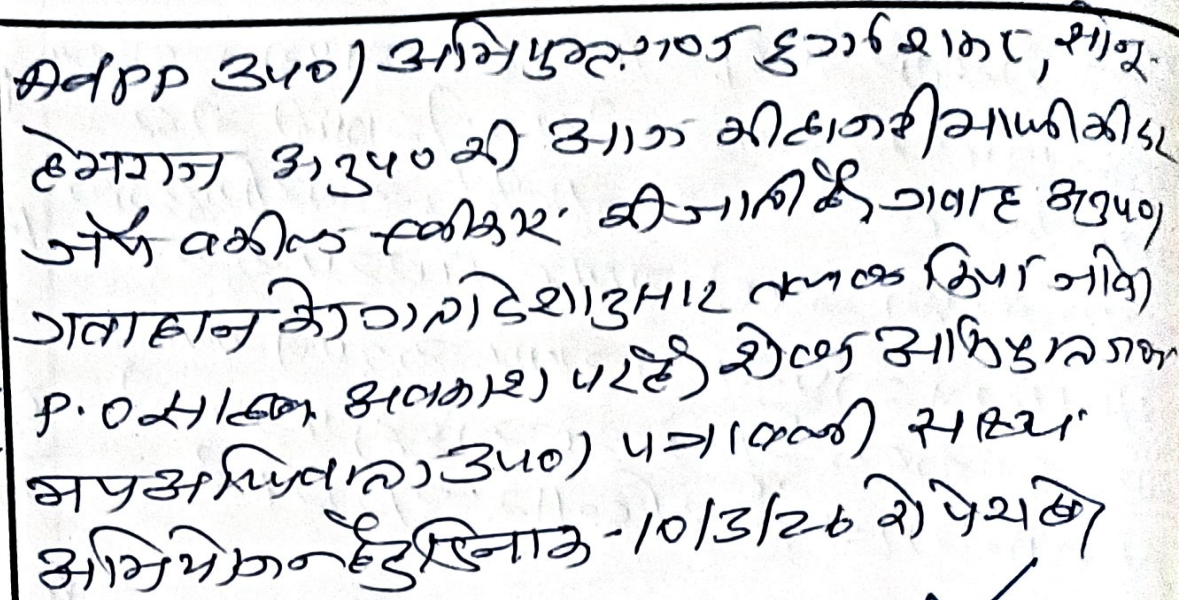 APP उप०। अभियुक्तगण दुर्गाशंकर, सोनू
हेमराज अनुप० की आज की हाजरी माफी की प्रा
जर्ये वकील स्वीकार की जाती है, गवाह अनुप०।
गवाहान को गत आदेशानुसार तलब किया जावे।
P.O साहब अवकाश पर है। शेष अभियुक्तगण
मय अधिवक्ता उप०। पत्रावली साक्ष्य
अभियोजन हेतु दिनांक -10/3/26 को पेश हो।